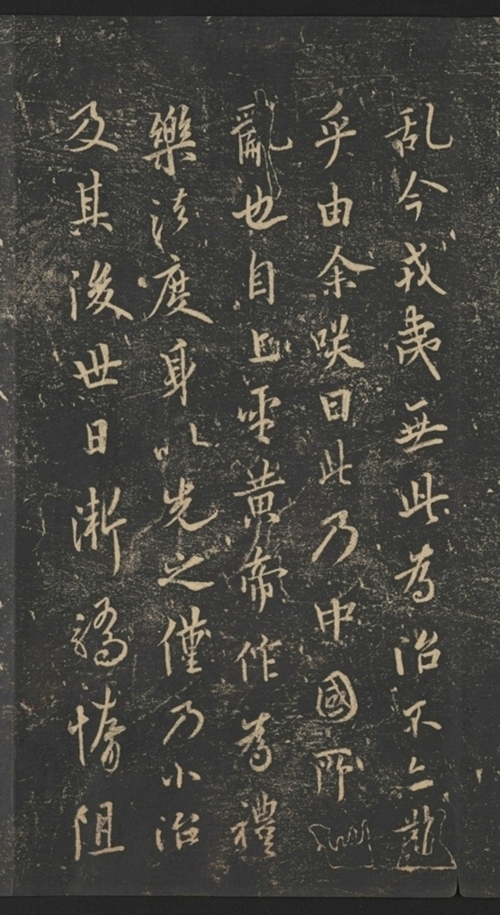 乱今戎夷無此為治不亦難
乎由余咲曰此乃中國所
亂也自上聖黃帝作為禮
樂法度身以先之僅乃小治
及其後世日漸驕惰阻